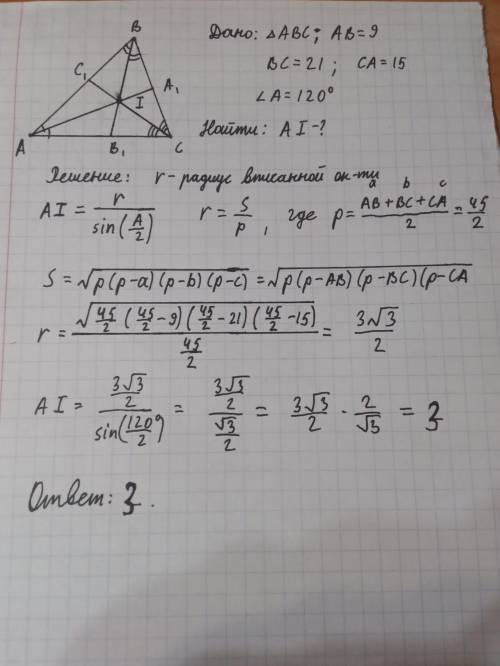 B
C₁
A₁
I
A
B₁
C
Дано: △ABC; AB=9
BC=21; CA=15
∠A=120°
Найти: AI-?
Решение: r-радиус вписанной ок-ти
a b c
AI = r / sin(A/2) r = S/p, где p = (AB+BC+CA)/2 = 45/2
S = √(p(p-a)(p-b)(p-c)) = √(p(p-AB)(p-BC)(p-CA
r = √(45/2 (45/2 -9)(45/2 -21)(45/2 -15)) / (45/2) = 3√3/2
AI = (3√3/2) / sin(120°/2) = (3√3/2) / (√3/2) = 3√3/2 · 2/√3 = 3
Ответ: 3.